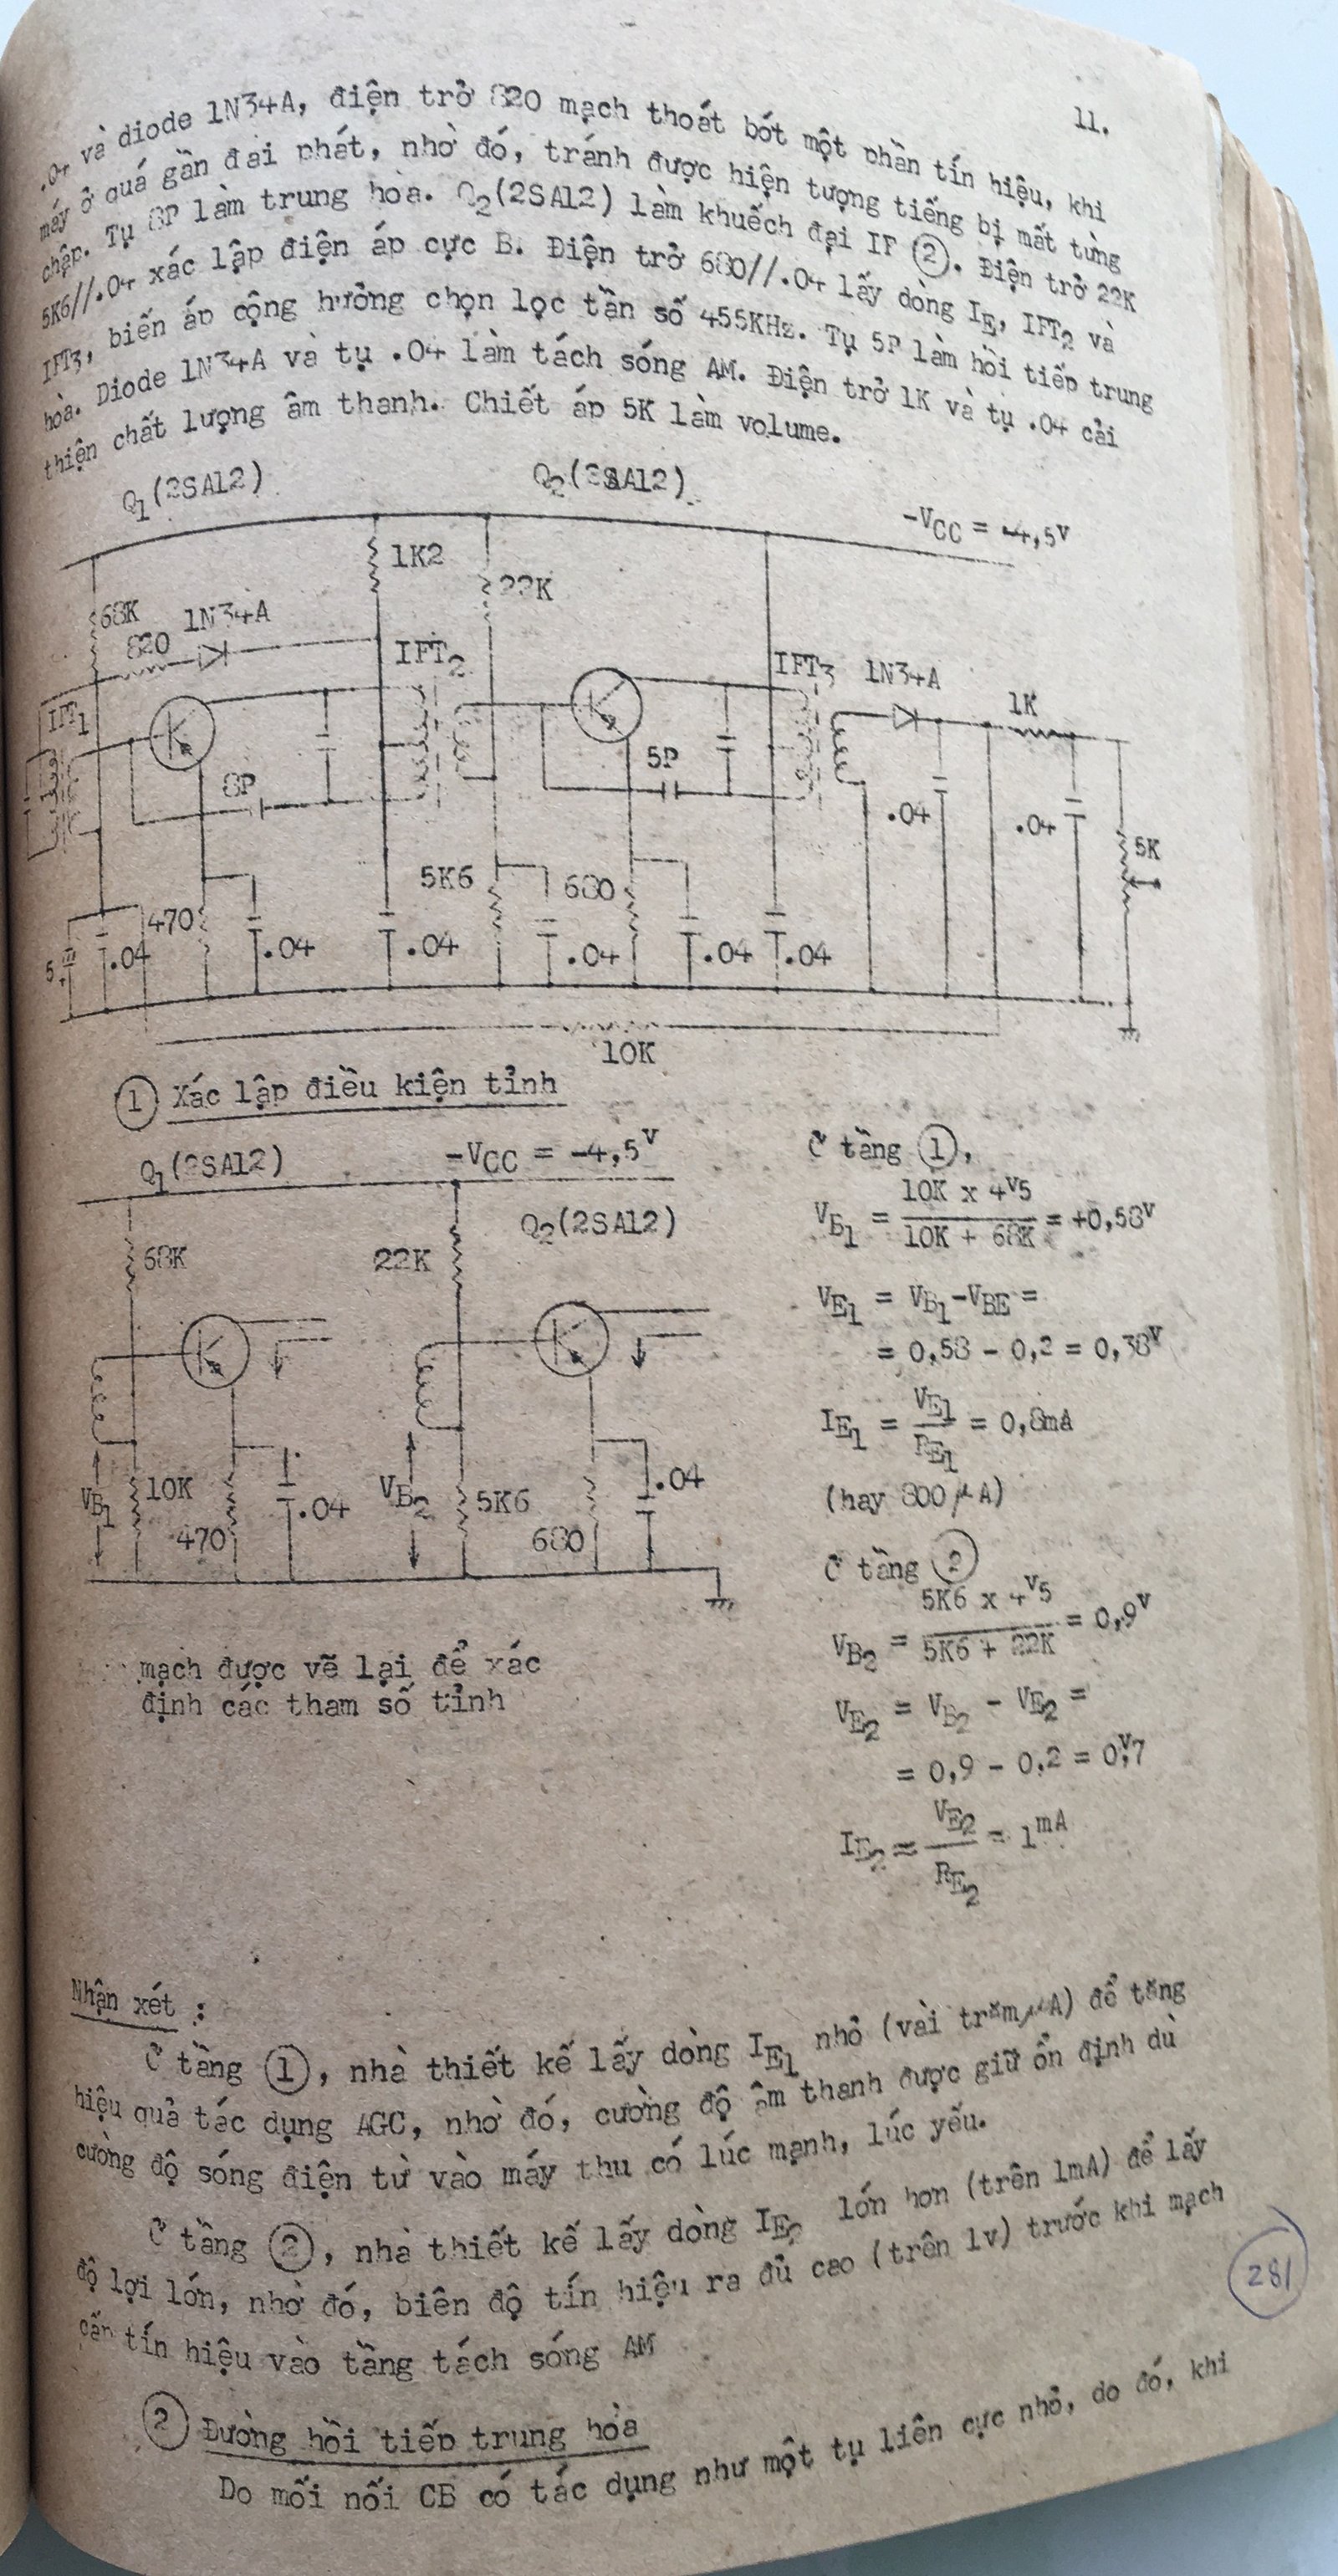 11.
.04 và diode 1N34A, điện trở 820 mạch thoát bớt một phần tín hiệu, khi
máy ở quá gần đài phát, nhờ đó, tránh được hiện tượng tiếng bị mất từng
chập. Tụ 8P làm trung hòa. Q2(2SA12) làm khuếch đại IF (2). Điện trở 22K
5K6//.04 xác lập điện áp cực B. Điện trở 680//.04 lấy dòng IE, IFT2 và
IFT3, biến áp cộng hưởng chọn lọc tần số 455KHz. Tụ 5P làm hồi tiếp trung
hòa. Diode 1N34A và tụ .04 làm tách sóng AM. Điện trở 1K và tụ .04 cải
thiện chất lượng âm thanh. Chiết áp 5K làm volume.
Q1(2SA12) Q2(2SA12) -VCC = -4,5V
1K2 22K
68K 1N34A
820
IFT2 IFT3 1N34A 1K
IFT1
8P 5P .04 .04 5K
5K6 680
470
5 .04 .04 .04 .04 .04 .04
10K
(1) Xác lập điều kiện tỉnh
Q1(2SA12) -VCC = -4,5V
68K 22K Q2(2SA12)
VB1 10K 470 .04 VB2 5K6 680 .04
mạch được vẽ lại để xác
định các tham số tỉnh
Ở tầng (1),
VB1 = 10K x 4V5 / 10K + 68K = +0,58V
VE1 = VB1-VBE =
= 0,58 - 0,2 = 0,38V
IE1 = VE1 / RE1 = 0,8mA
(hay 800 μA)
Ở tầng (2)
VB2 = 5K6 x 4V5 / 5K6 + 22K = 0,9V
VE2 = VB2 - VE2 =
= 0,9 - 0,2 = 0,V7
IE2 = VE2 / RE2 = 1mA
Nhận xét :
Ở tầng (1), nhà thiết kế lấy dòng IE1 nhỏ (vài trăm μA) để tăng
hiệu quả tác dụng AGC, nhờ đó, cường độ âm thanh được giữ ổn định dù
cường độ sóng điện từ vào máy thu có lúc mạnh, lúc yếu.
Ở tầng (2), nhà thiết kế lấy dòng IE2 lớn hơn (trên 1mA) để lấy
độ lợi lớn, nhờ đó, biên độ tín hiệu ra đủ cao (trên 1v) trước khi mạch
cấp tín hiệu vào tầng tách sóng AM
281
(2) Đường hồi tiếp trung hòa
Do mối nối CB có tác dụng như một tụ liên cực nhỏ, do đó, khi